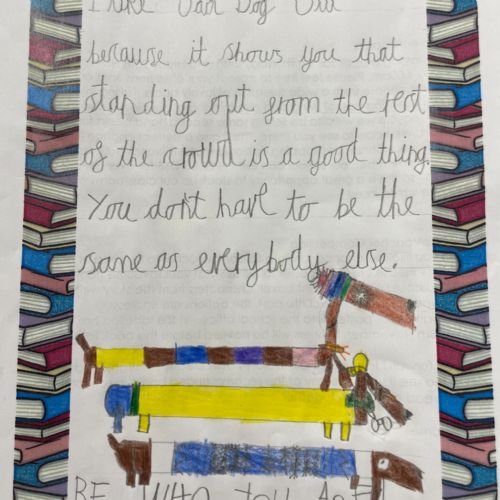 I like
because it shows you that
standing out from the rest
of the crowd is a good thing.
You don't have to be the
same as everybody else.
BE WHO YOU ARE